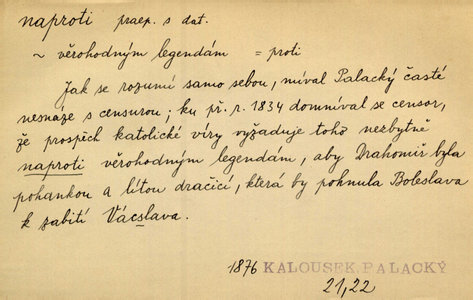 naproti praep. s dat.
~ věrohodným legendám = proti
Jak se rozumí samo sebou, míval Palacký časté
nesnáze s censurou; ku př. r. 1834 domníval se censor,
že prospěch katolické víry vyžaduje toho nezbytně
naproti věrohodným legendám, aby Drahomíř byla
pohankou a lítou dračicí, která by pohnula Boleslava
k zabití Vácslava.
1876 KALOUSEK, PALACKÝ
21,22